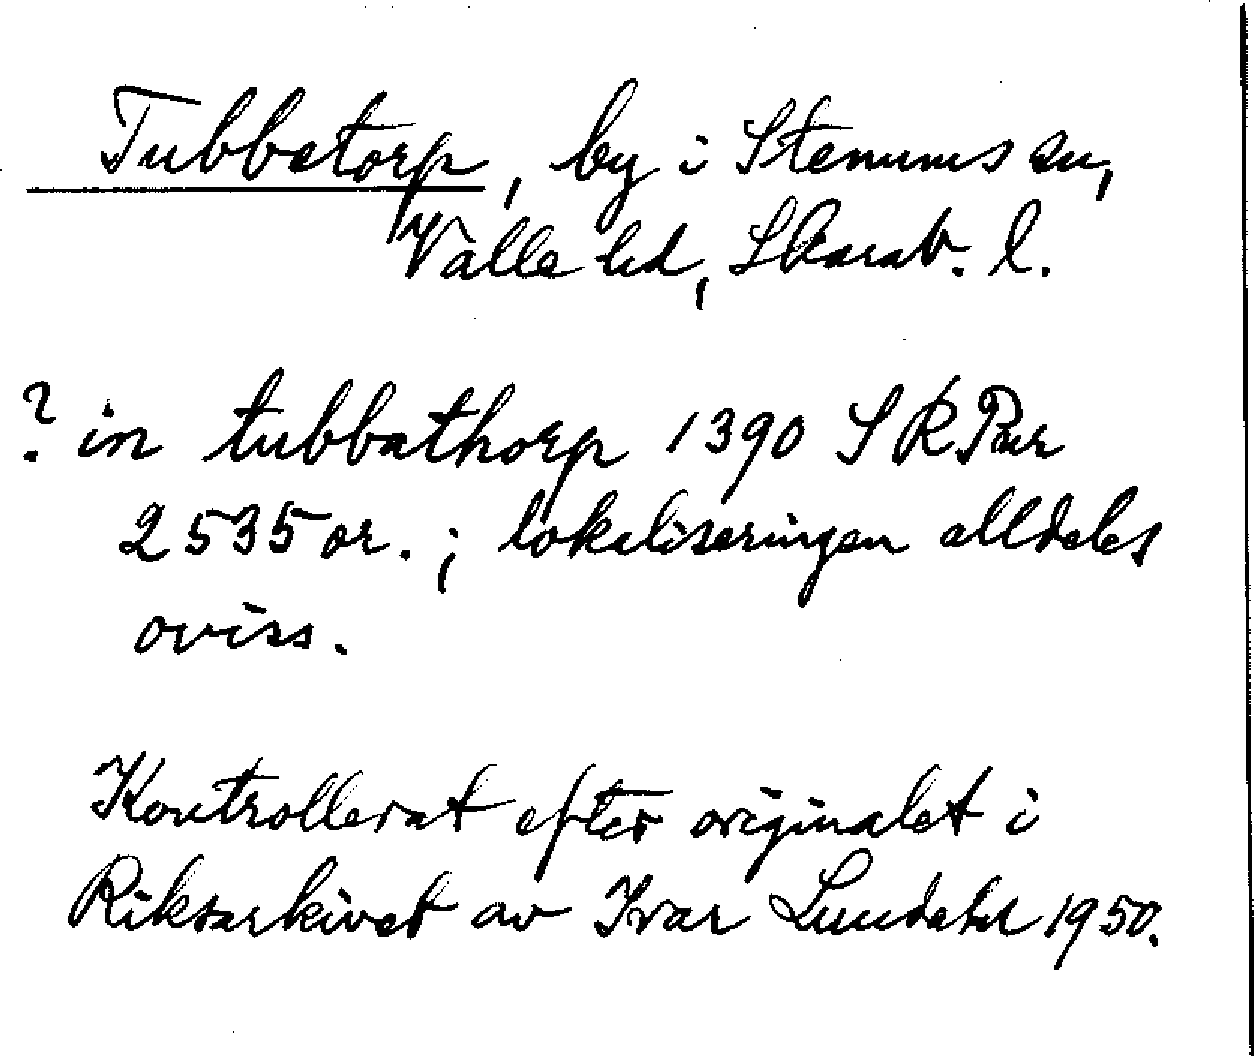 Tubbetorp, by i Stenums sn,
Valle hd, Skarab. l.
? in tubbathorp 1390 SRPur
2535 or. ; lokaliseringen alldeles
oviss.
Kontrollerat efter originalet i
Riksarkivet av Ivar Lundahl 1950.